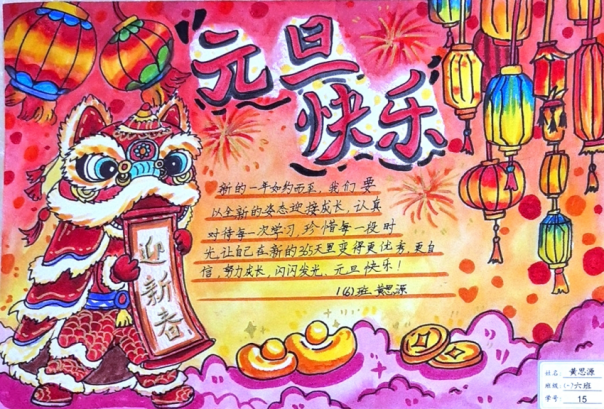 元旦
快乐
新的一年如约而至,我们要
以全新的姿态迎接成长,认真
对待每一次学习,珍惜每一段时
光,让自己在新的365天里变得更优秀,更自
信,努力成长,闪闪发光,元旦快乐!
1(6)班 黄思源
迎新春
姓名: 黄思源
班级: (一)六班
学号: 15